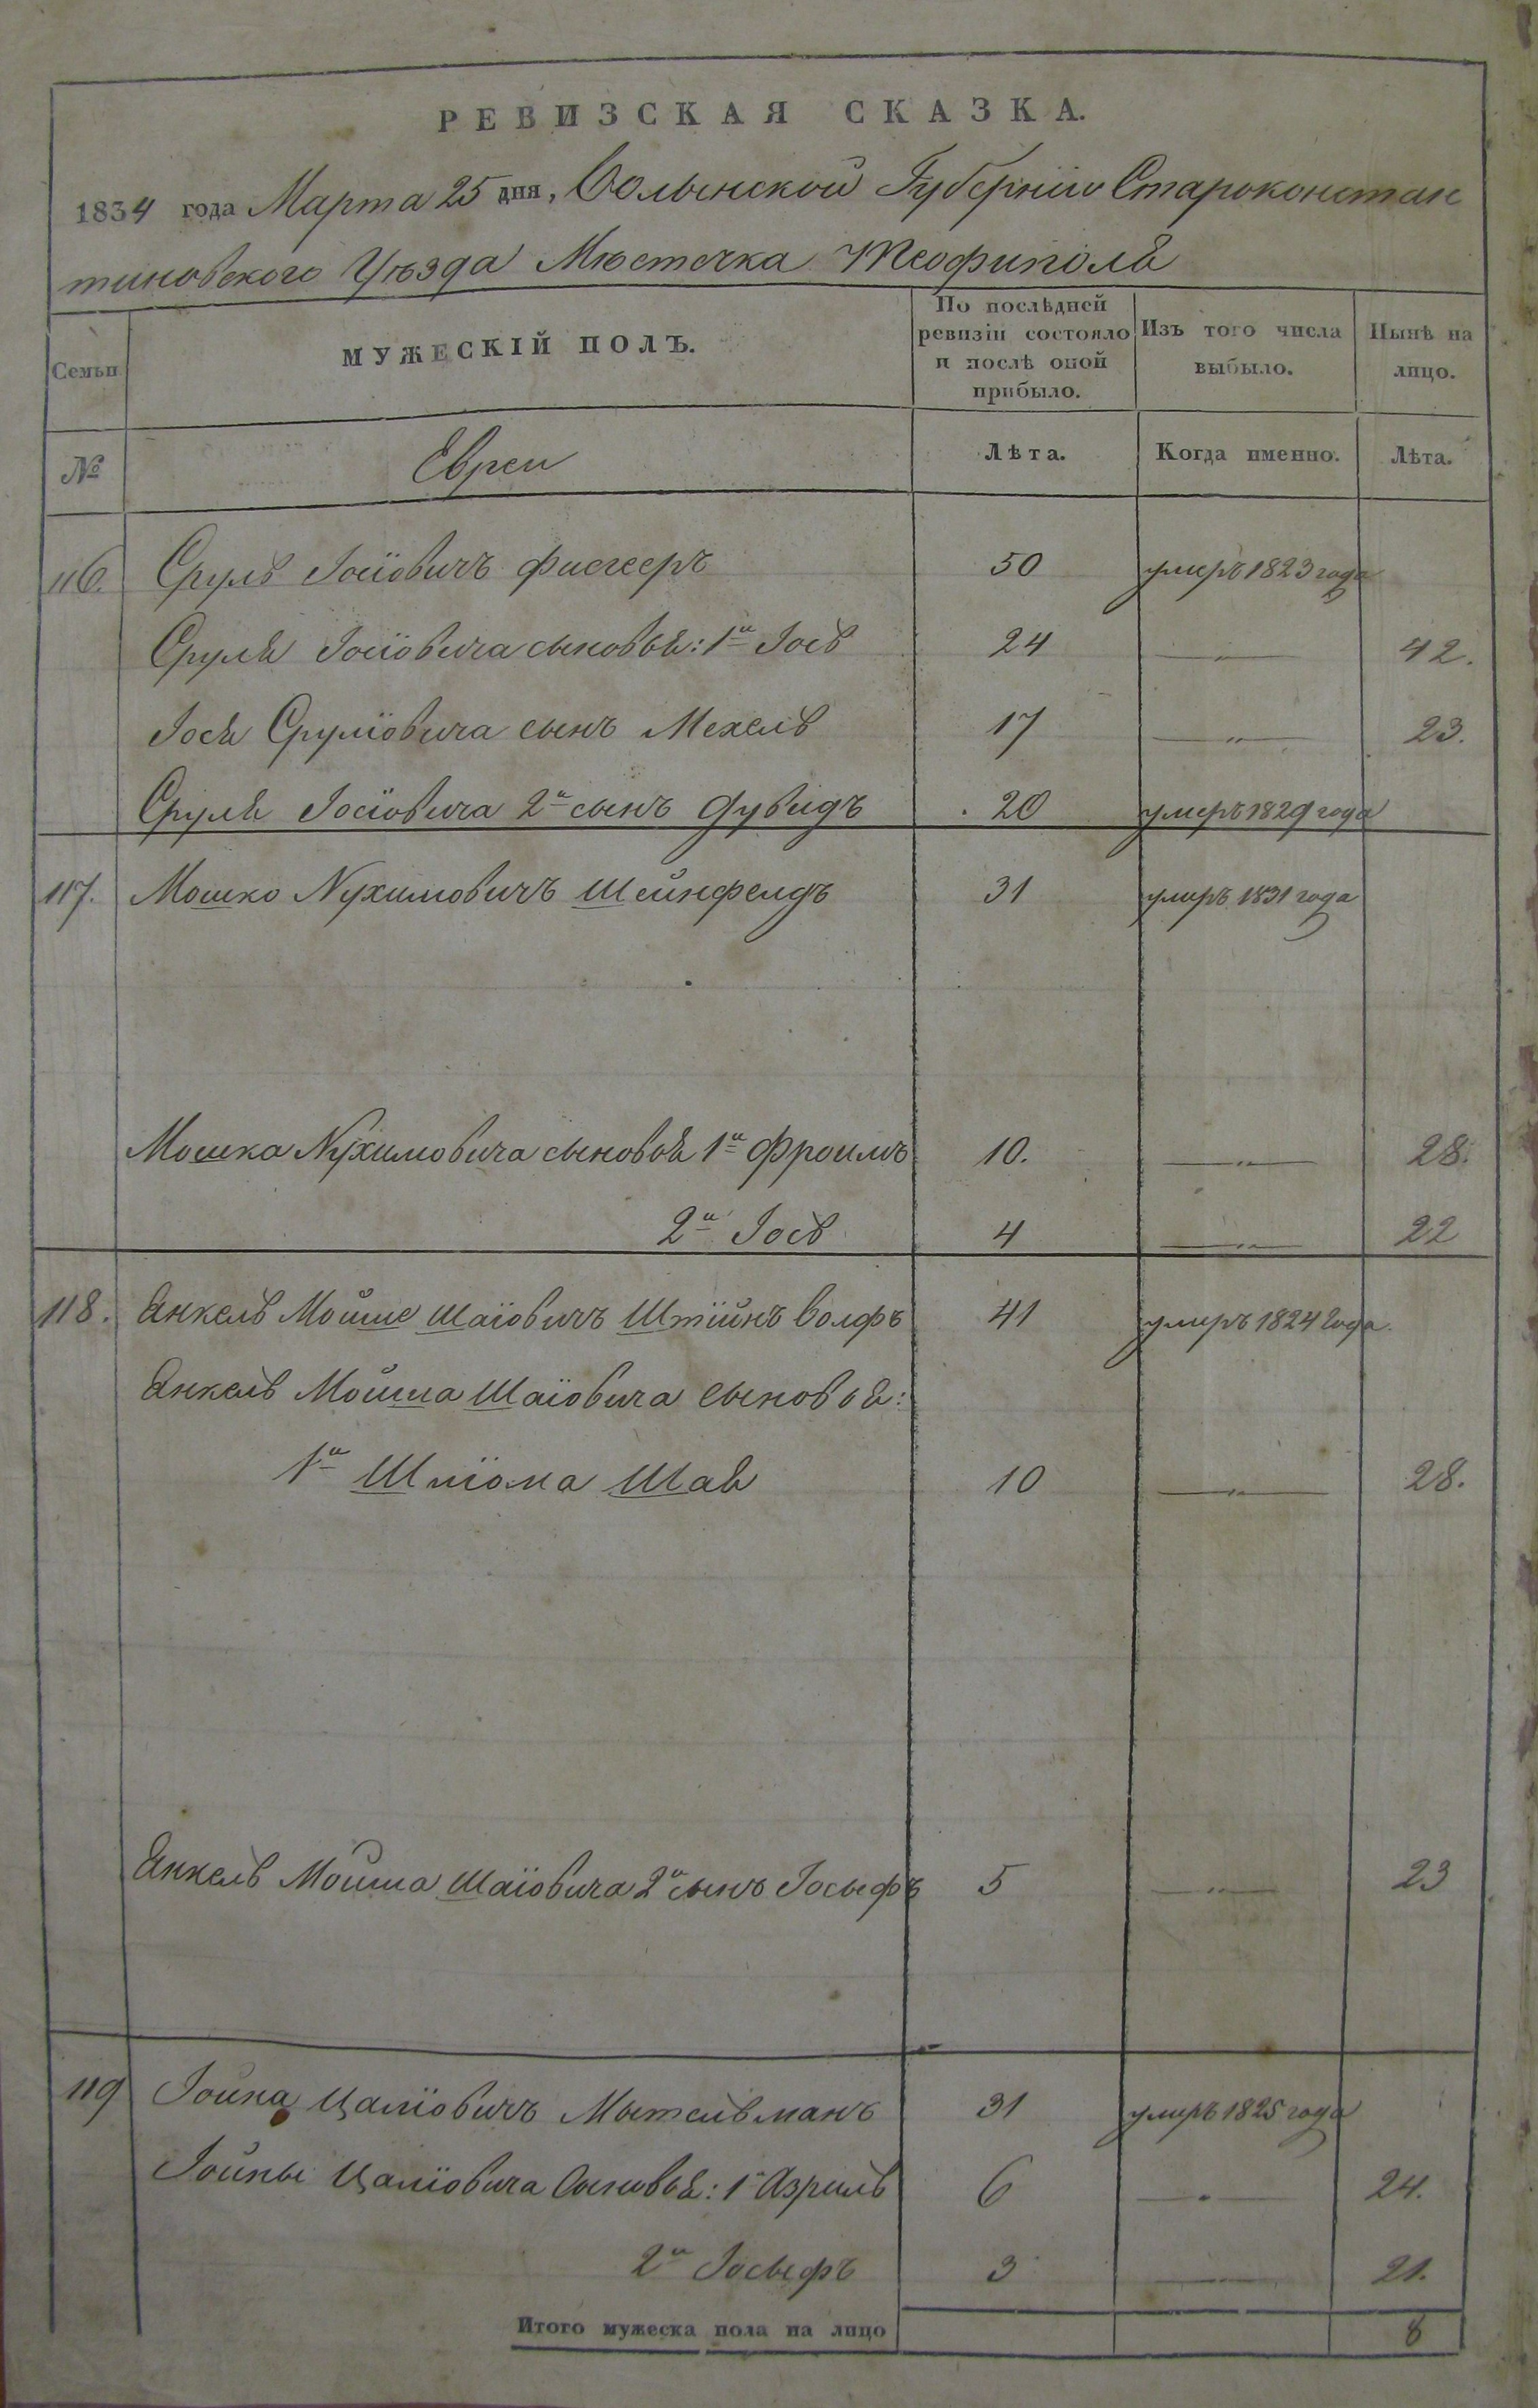 РЕВИЗСКАЯ СКАЗКА.
1834 года Марта 25 дня, Волынской Губернїи Староконстан
тиновского Уѣзда Мѣстечка Теофиполя
Семьи
МУЖЕСКІЙ ПОЛЪ.
По послѣдней ревизіи состояло и послѣ оной прибыло.
Изъ того числа выбыло.
Нынѣ на лицо.
№ Евреи Лѣта. Когда именно. Лѣта.
116. Сруль Іосіовичъ 50 умеръ 1823 года
Сруля Іосіовича сыновья: 1й Іось 24 —„— 42.
Іося Сруліовича сынъ Мехель 17 —„— 23.
Сруля Іосіовича 2й сынъ Дувидъ 20 умеръ 1829 года
117. Мошко Нухимовичъ Шейнфелдъ 31 умеръ 1831 года
Мошка Нухимовича сыновья 1й Фроимъ 10. —„— 28.
2й Іось 4 —„— 22
118. Анкель Мойше Шаіовичъ Штійнъ Волфъ 41 умеръ 1824 года.
Анкель Мойша Шаіовича сыновья:
1й Шліома Шая 10 —„— 28.
Анкель Мойша Шаіовича 2й сынъ Іосьефъ 5 —„— 23
119 Іойна Цаліовичъ Мытельманъ 31 умеръ 1825 года
Іойны Цаліовича Сыновья: 1й Азриль 6 —„— 24.
2й Іосьефъ 3 — 21.
Итого мужеска пола на лицо 8